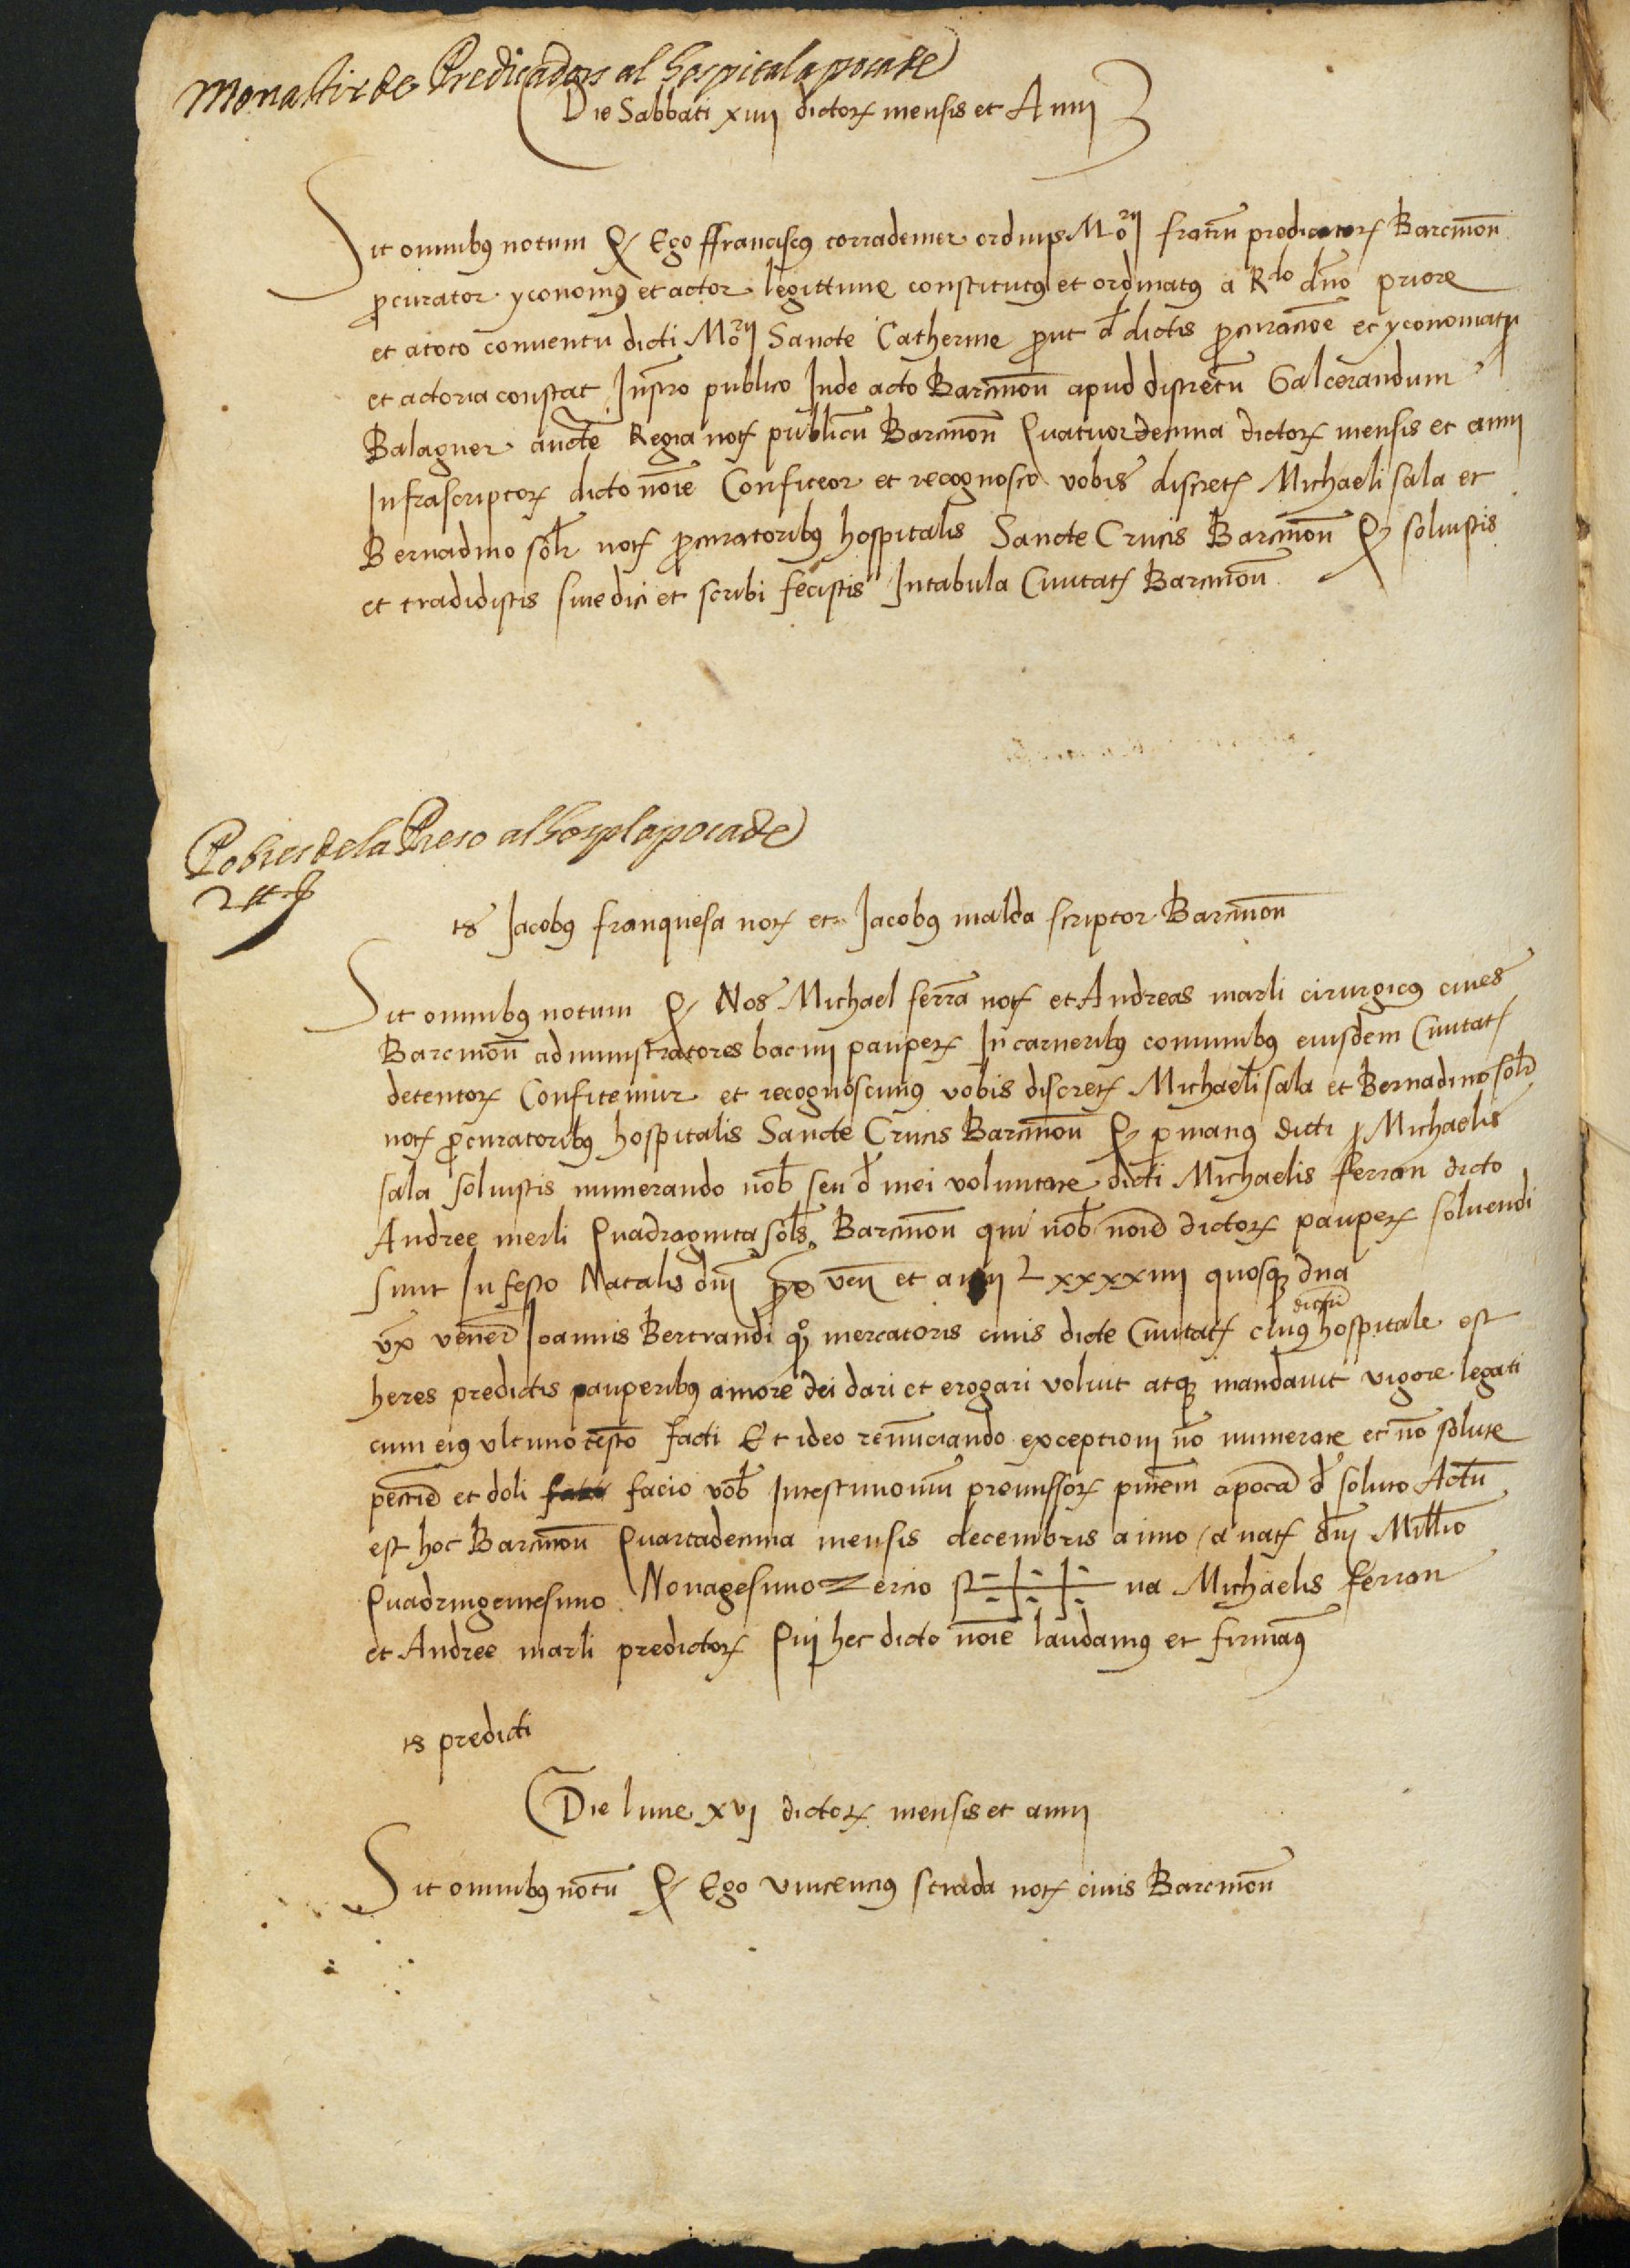 Monastir de Predicadors al hospital apoca de
Die Sabbati xiiii dictorꝝ mensis et Anni
Sit omnibꝰ notum ꝙ Ego ffranciscꝰ corrademer ordinis Morii fratrũ predicatorꝝ Barcinoñ
ꝓcurator yconomꝰ et actor legittime constitutꝰ et ordinatꝰ a Rdo dño priore
et a toto conventu dicti Morii Sancte Catherine ꝓut đ dictis ꝓcuracioe et yconomatu
et actoria constat Instro publico Inde acto Barcinoñ apud discretũ Galcerandum
Balaguer aucte Regia notꝝ publicũ Barcinoñ Quatuordecima dictorꝝ mensis et anni
Infrascriptorꝝ dicto noie Confiteor et recognosco vobis discretꝝ Michaeli sala et
Bernadino solr notꝝ ꝓcuratoribꝰ hospitalis Sancte Crucis Barcinoñ ꝙ solvistis
et tradidistis sive dici et scribi fecistis In tabula Civitatꝝ Barcinoñ
Pobres de la Preso al hospl apoca de
2 ℔
ts Jacobꝰ franquesa notꝝ et Jacobꝰ malda scriptor Barcinoñ
Sit omnibꝰ notum ꝙ Nos Michael ferrã notꝝ et Andreas marli cirurgicꝰ cives
Barcinoñ administratores bacini pauperꝝ In carceribꝰ comunibꝰ eiusdem Civitatꝝ
detentorꝝ Confitemur et recognoscimꝰ vobis discretꝝ Michaeli sala et Bernadino solr
notꝝ ꝓcuratoribꝰ hospitalis Sancte Crucis Barcinoñ ꝙ ꝑ manꝰ dicti Michaelis
sala solvistis numerando nob seu đ mei voluntate dicti Michaelis ferran dicto
Andree merli Quadraginta sols Barcinoñ qui nob noie dictorꝝ pauperꝝ solvendi
sunt In festo Natalis dñi ꝓxe veñ et anni Lxxxxiiii quosqꝫ dña
vx vener Joannis Bertrandi qͦ mercatoris civis dicte Civitatꝝ cuiꝰ dictũ hospitale est
heres predictis pauperibꝰ amore dei dari et erogari voluit atqꝫ mandavit vigore legati
cum eiꝰ ultimo testo facti Et ideo renũciando exceptioni nõ numerate et nõ solute
pecũie et doli facio vob In testimoniũ premissorꝝ pñtem apocã đ soluto Actũ
est hoc Barcinoñ Quartadecima mensis decembris anno a natꝝ dñi Millio
Quadringentesimo Nonagesimo Tercio S++++na Michaelis ferran
et Andree marli predictorꝝ Qui hec dicto noie laudamꝰ et firmamꝰ
ts predicti
Die lune xvj dictorꝝ mensis et anni
Sit omnibꝰ notũ ꝙ Ego vincenciꝰ strada notꝝ civis Barcinoñ